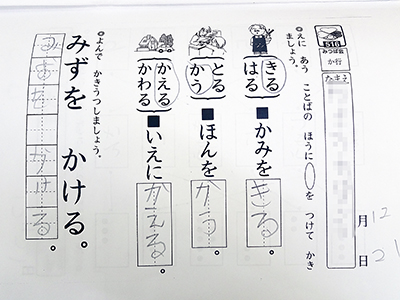 516
みつば会
か行
なまえ
12月21日
えに あう ことばの ほうに◯を つけて かきましょう。
きる
はる
■かみを きる。
とる
かう
■ほんを かう。
かえる
かわる
■いえに かえる。
よんで かきうつしましょう。
みずを かける。
みずを かける。